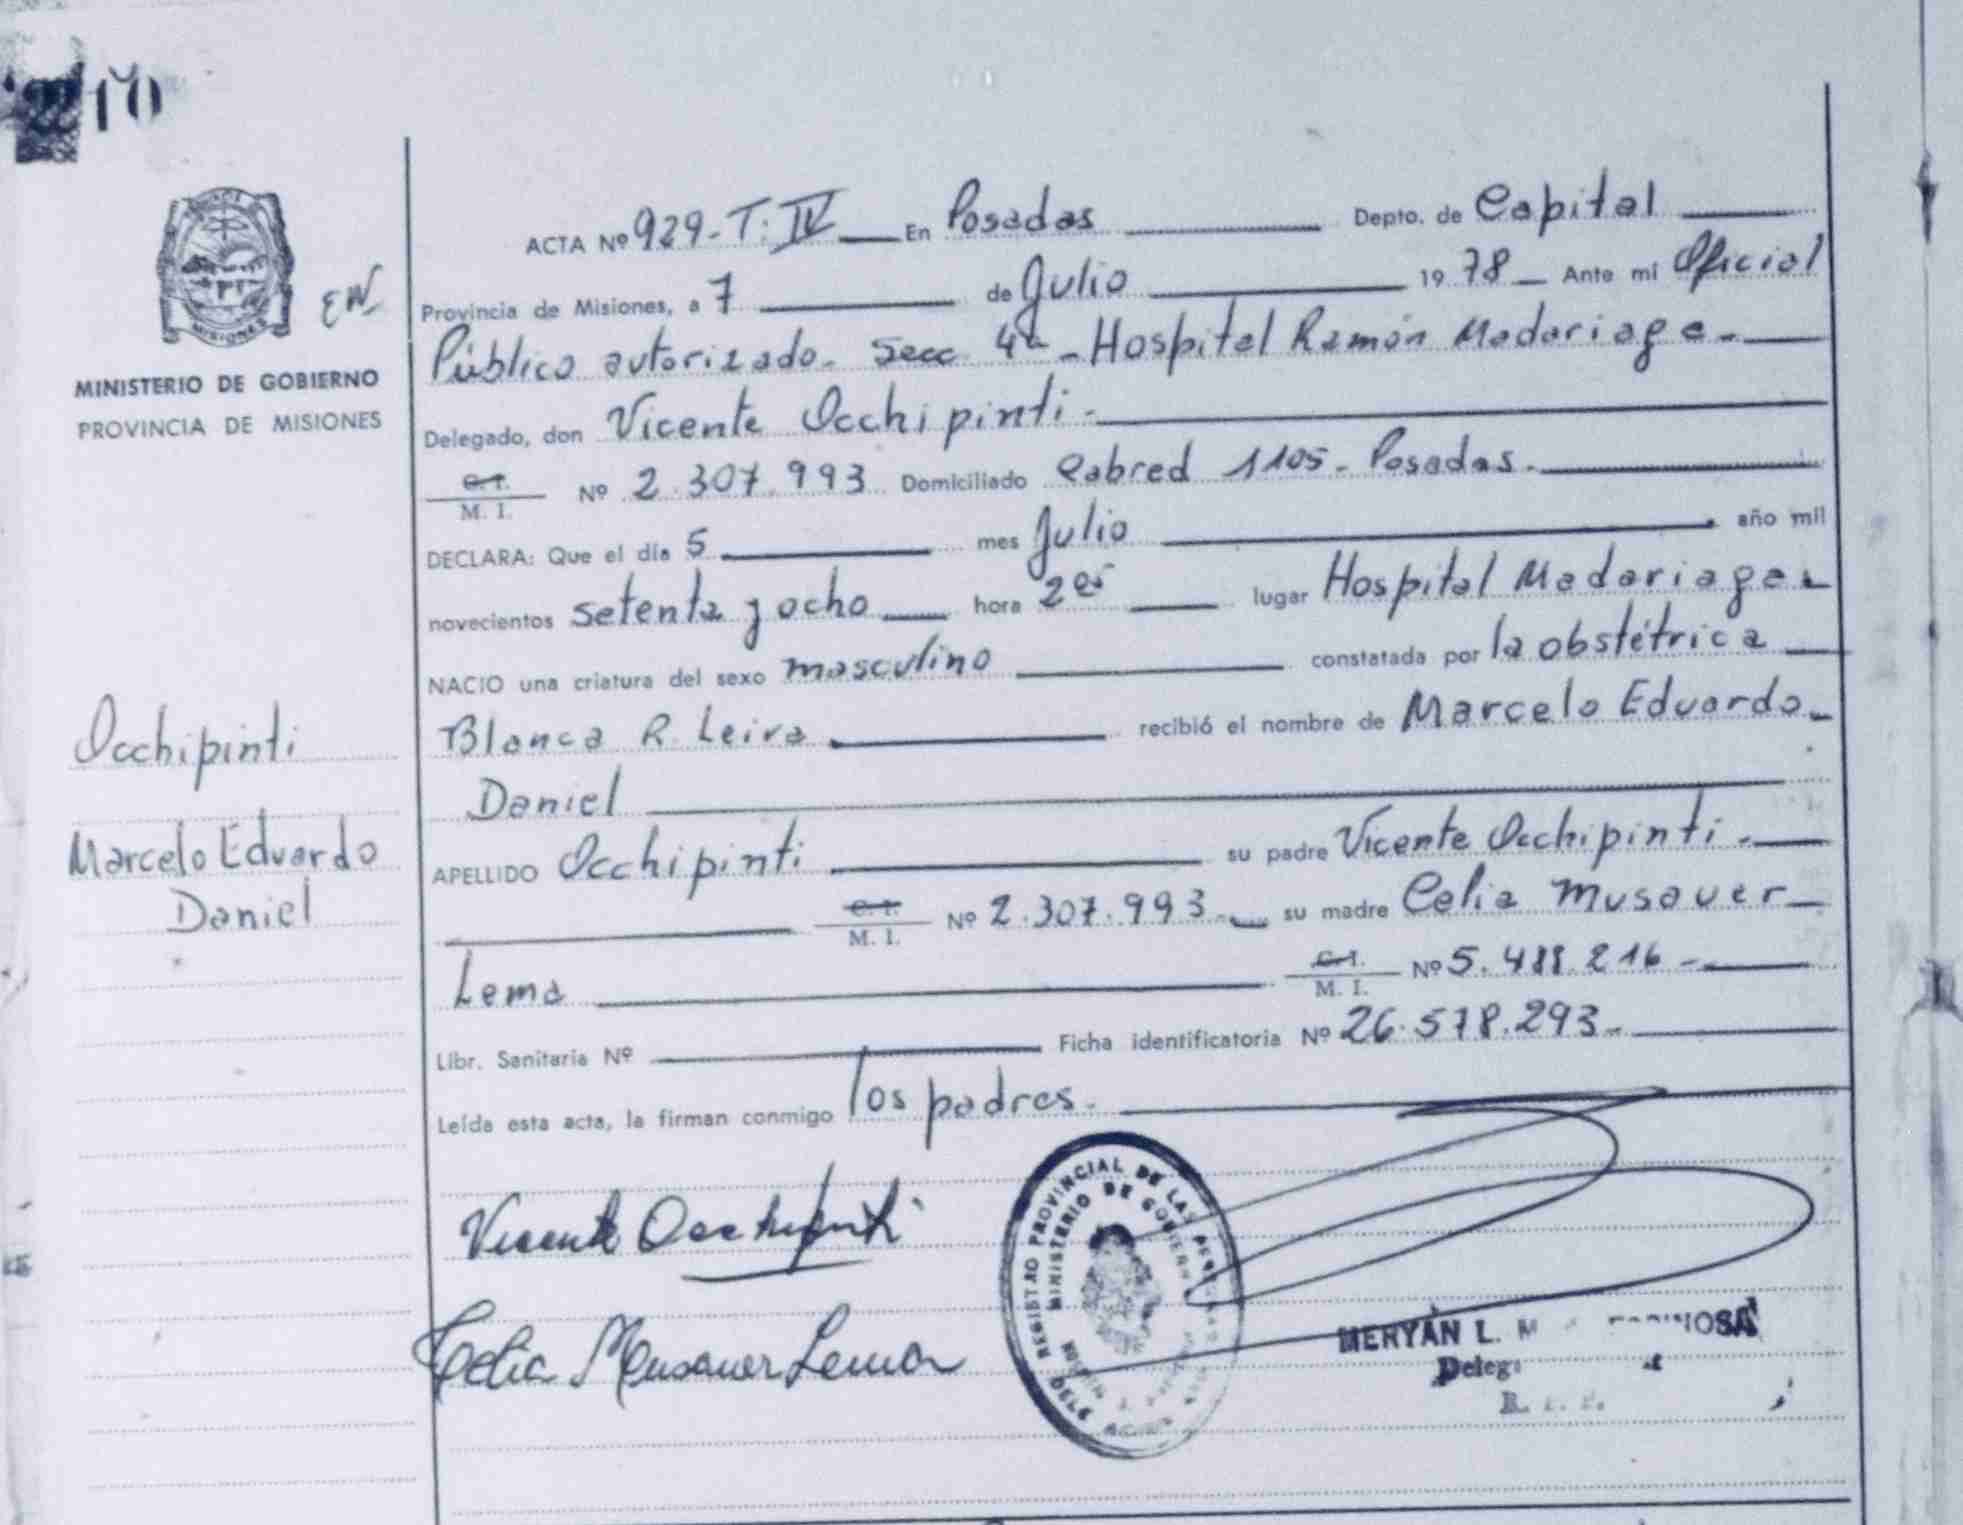 10
MISIONES
MINISTERIO DE GOBIERNO
PROVINCIA DE MISIONES
ACTA Nº 929-T: IV En Posadas Depto. de Capital
Provincia de Misiones, a 7 de Julio 19 78 Ante mi Oficial
Público autorizado. Secc 4ta - Hospital Ramón Madariaga.
Delegado, don Vicente Occhipinti.
C. I. M. I. Nº 2.307.993 Domiciliado Cabred 1105 - Posadas.
DECLARA: Que el día 5 mes Julio año mil
novecientos setenta y ocho hora lugar Hospital Madariaga.
NACIO una criatura del sexo masculino constatada por la obstétrica
Blanca R. Leiva recibió el nombre de Marcelo Eduardo
Daniel
APELLIDO Occhipinti su padre Vicente Occhipinti.
C. I. M. I. Nº 2.307.993. su madre Celia Musauer
Lema C. I. M. I. Nº 5.488.216
Libr. Sanitaria Nº Ficha identificatoria Nº 26.578.293.
Leída esta acta, la firman conmigo los padres.
Occhipinti
Marcelo Eduardo
Daniel
Vicente Occhipinti
Celia Musauer Lema
REGISTRO PROVINCIAL DE LAS
MINISTERIO DE GOBIERNO
MERYAN L. M